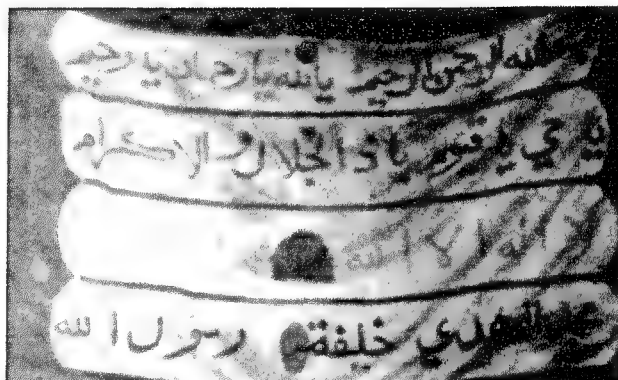 الله الرحمن الرحيم يا الله يا رحمان يا رحيم
يا حي يا قيوم يا ذا الجلال و الاكرام
لا اله الا الله
محمد المهدي خليفة رسول الله